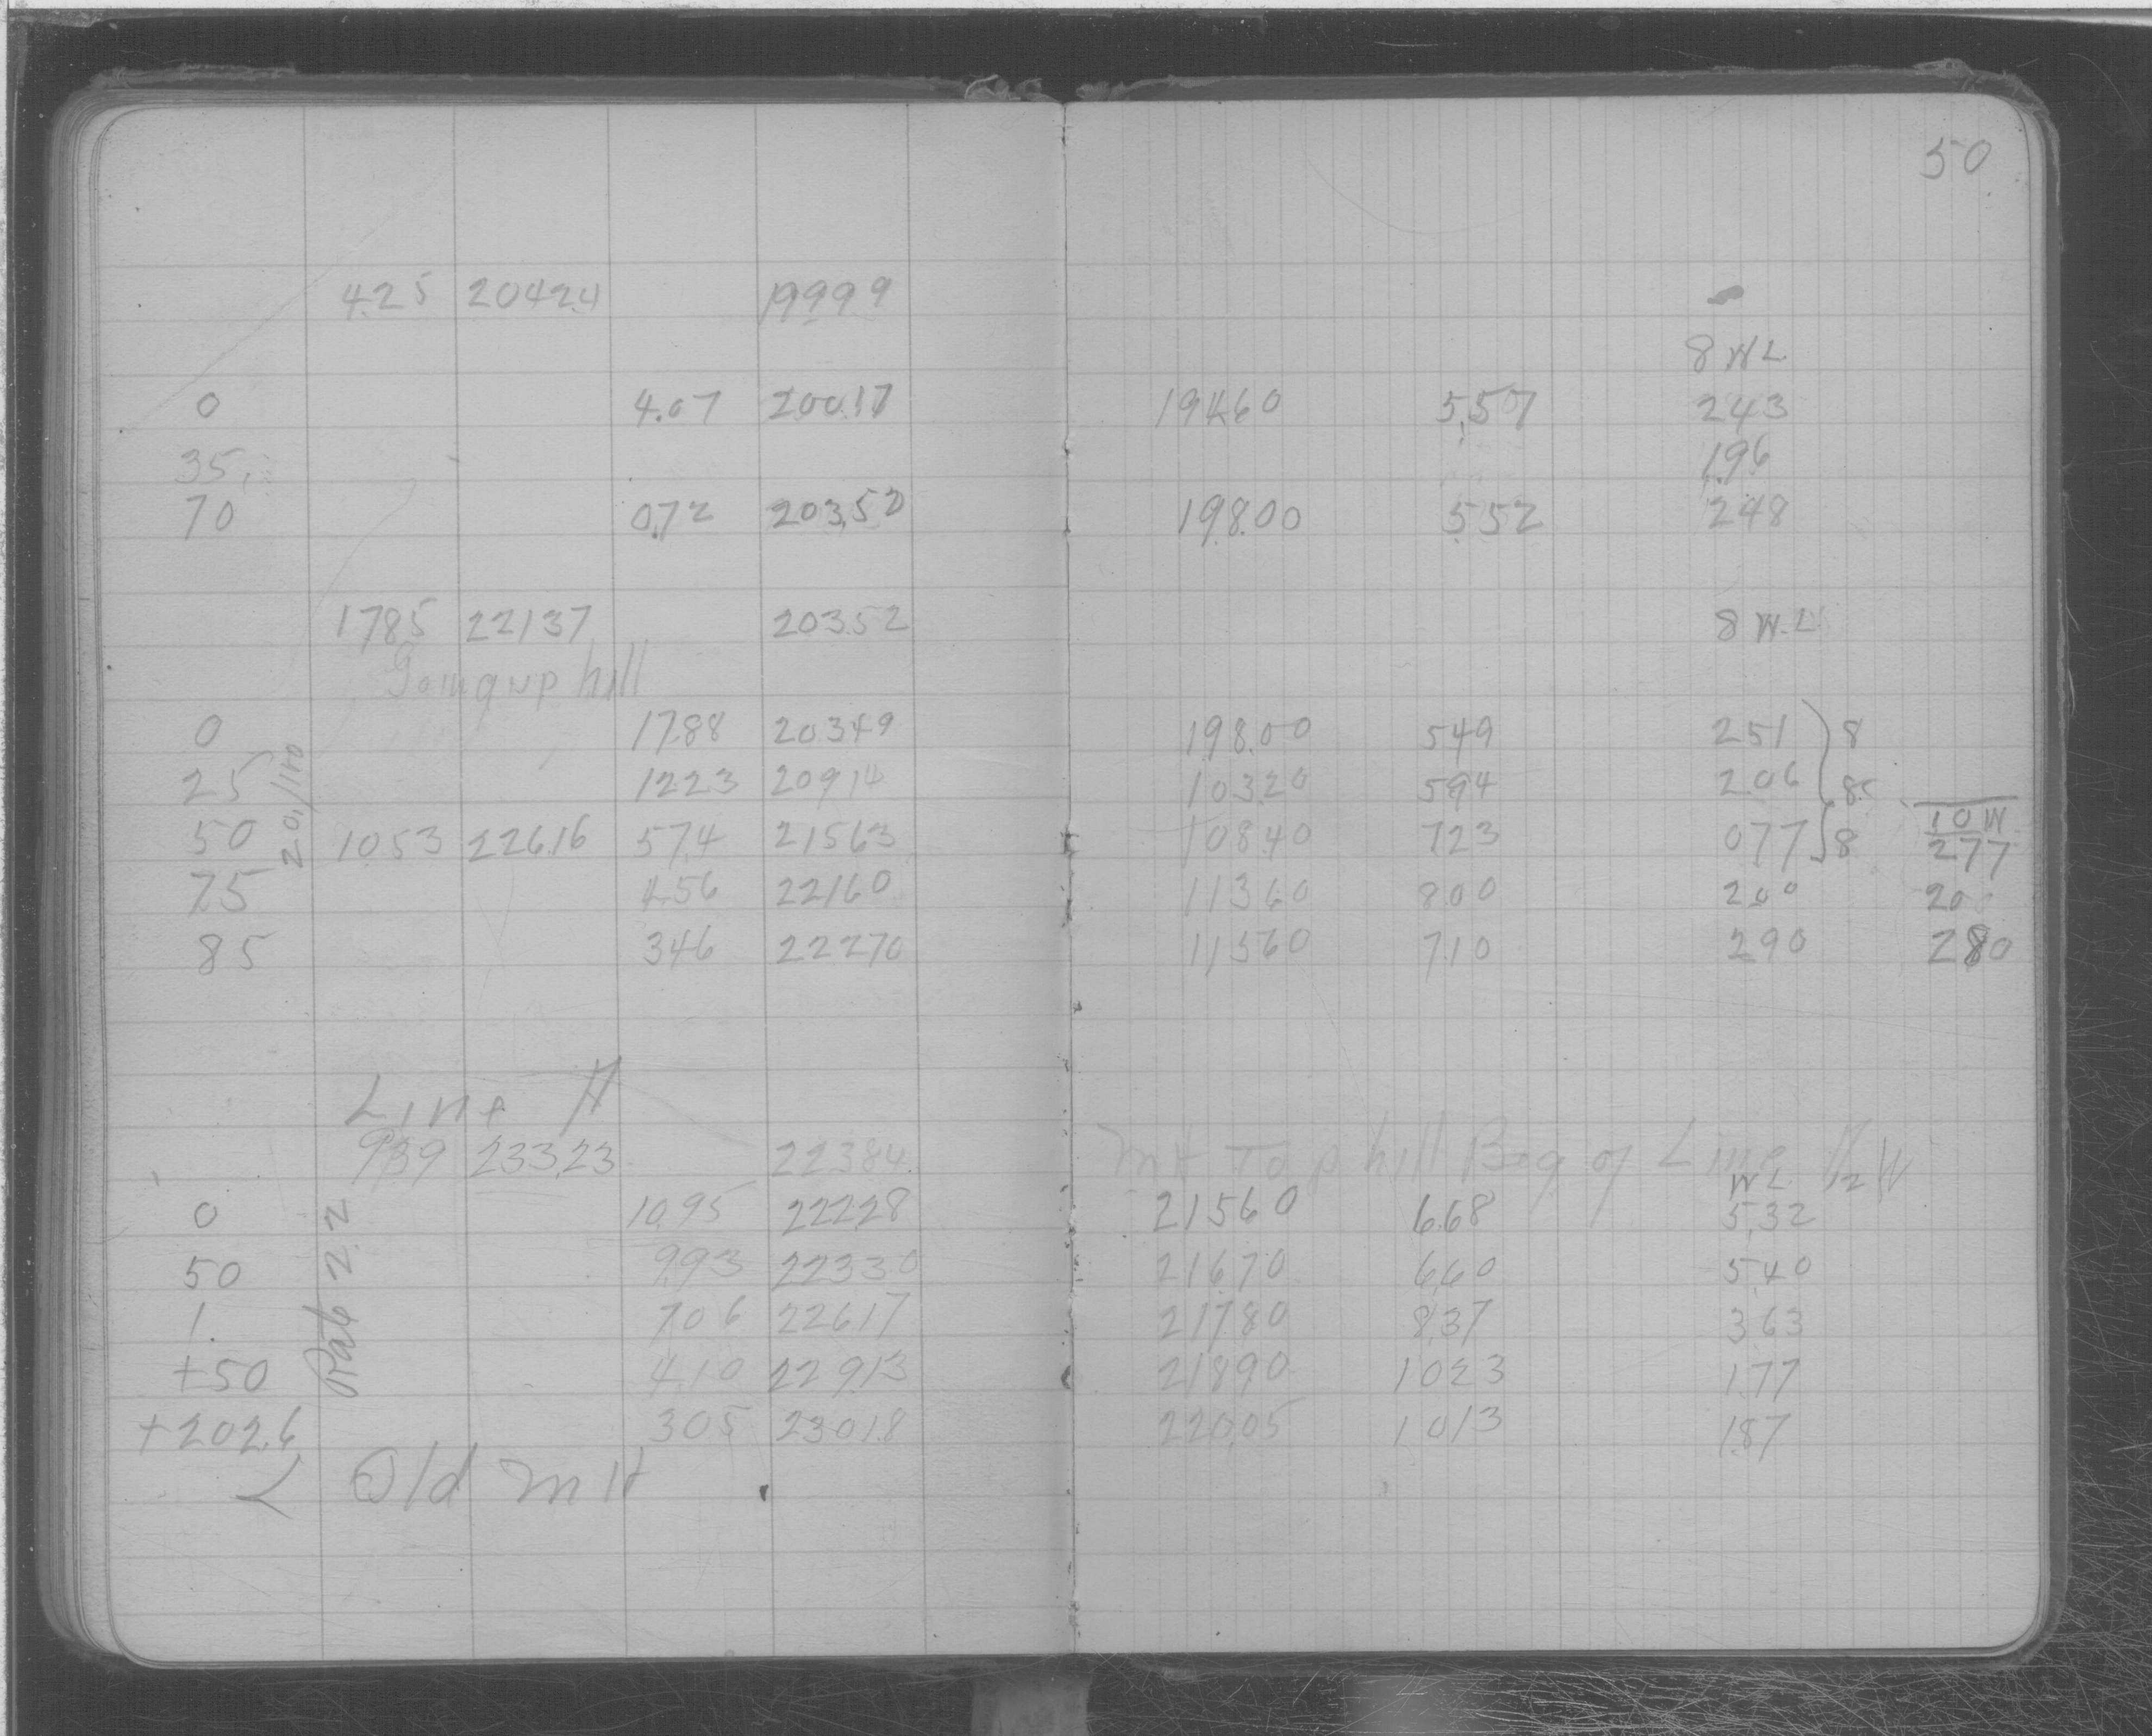 50
425 20424 19999
8 WL
0 4.07 200.17 19460 5.57 243
35. 196
70 0.72 203.52 198.00 552 248
1785 22137 20352 8 W.L.
Going up hill
0 1788 20349 198.00 549 251 8
25 1223 20914 10320 594 206 8
20./100
50 1053 22616 574 21563 10840 723 077 8 10W 277
75 456 22160 11360 800 200 20
85 346 22270 11560 710 290 280
Line H
939 233.23 22384 Mt Top hill Beg of Line H
WL 12
0 1095 22228 21560 668 532
Rate 2.2
50 993 22330 21670 660 540
1. 706 22617 21780 837 363
+50 410 22913 21890 1023 177
+202.6 305 23018 22005 1013 187
Old mH